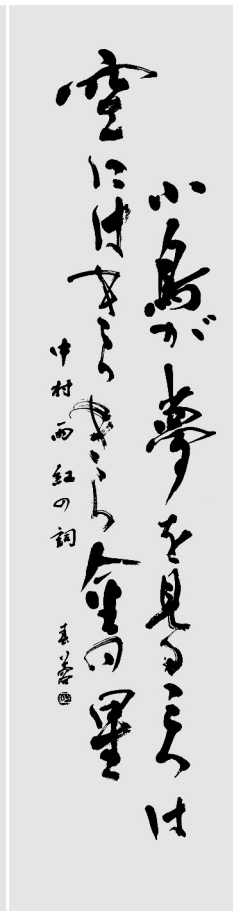 小鳥が夢を見るころは
空にはきらきら金の星
中村雨紅の詞
春蓉